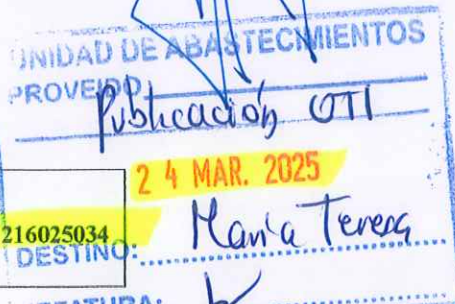 UNIDAD DE ABASTECIMIENTOS
PROVEIDO
Publicación OTI
24 MAR. 2025
216025034
DESTINO: María Teresa